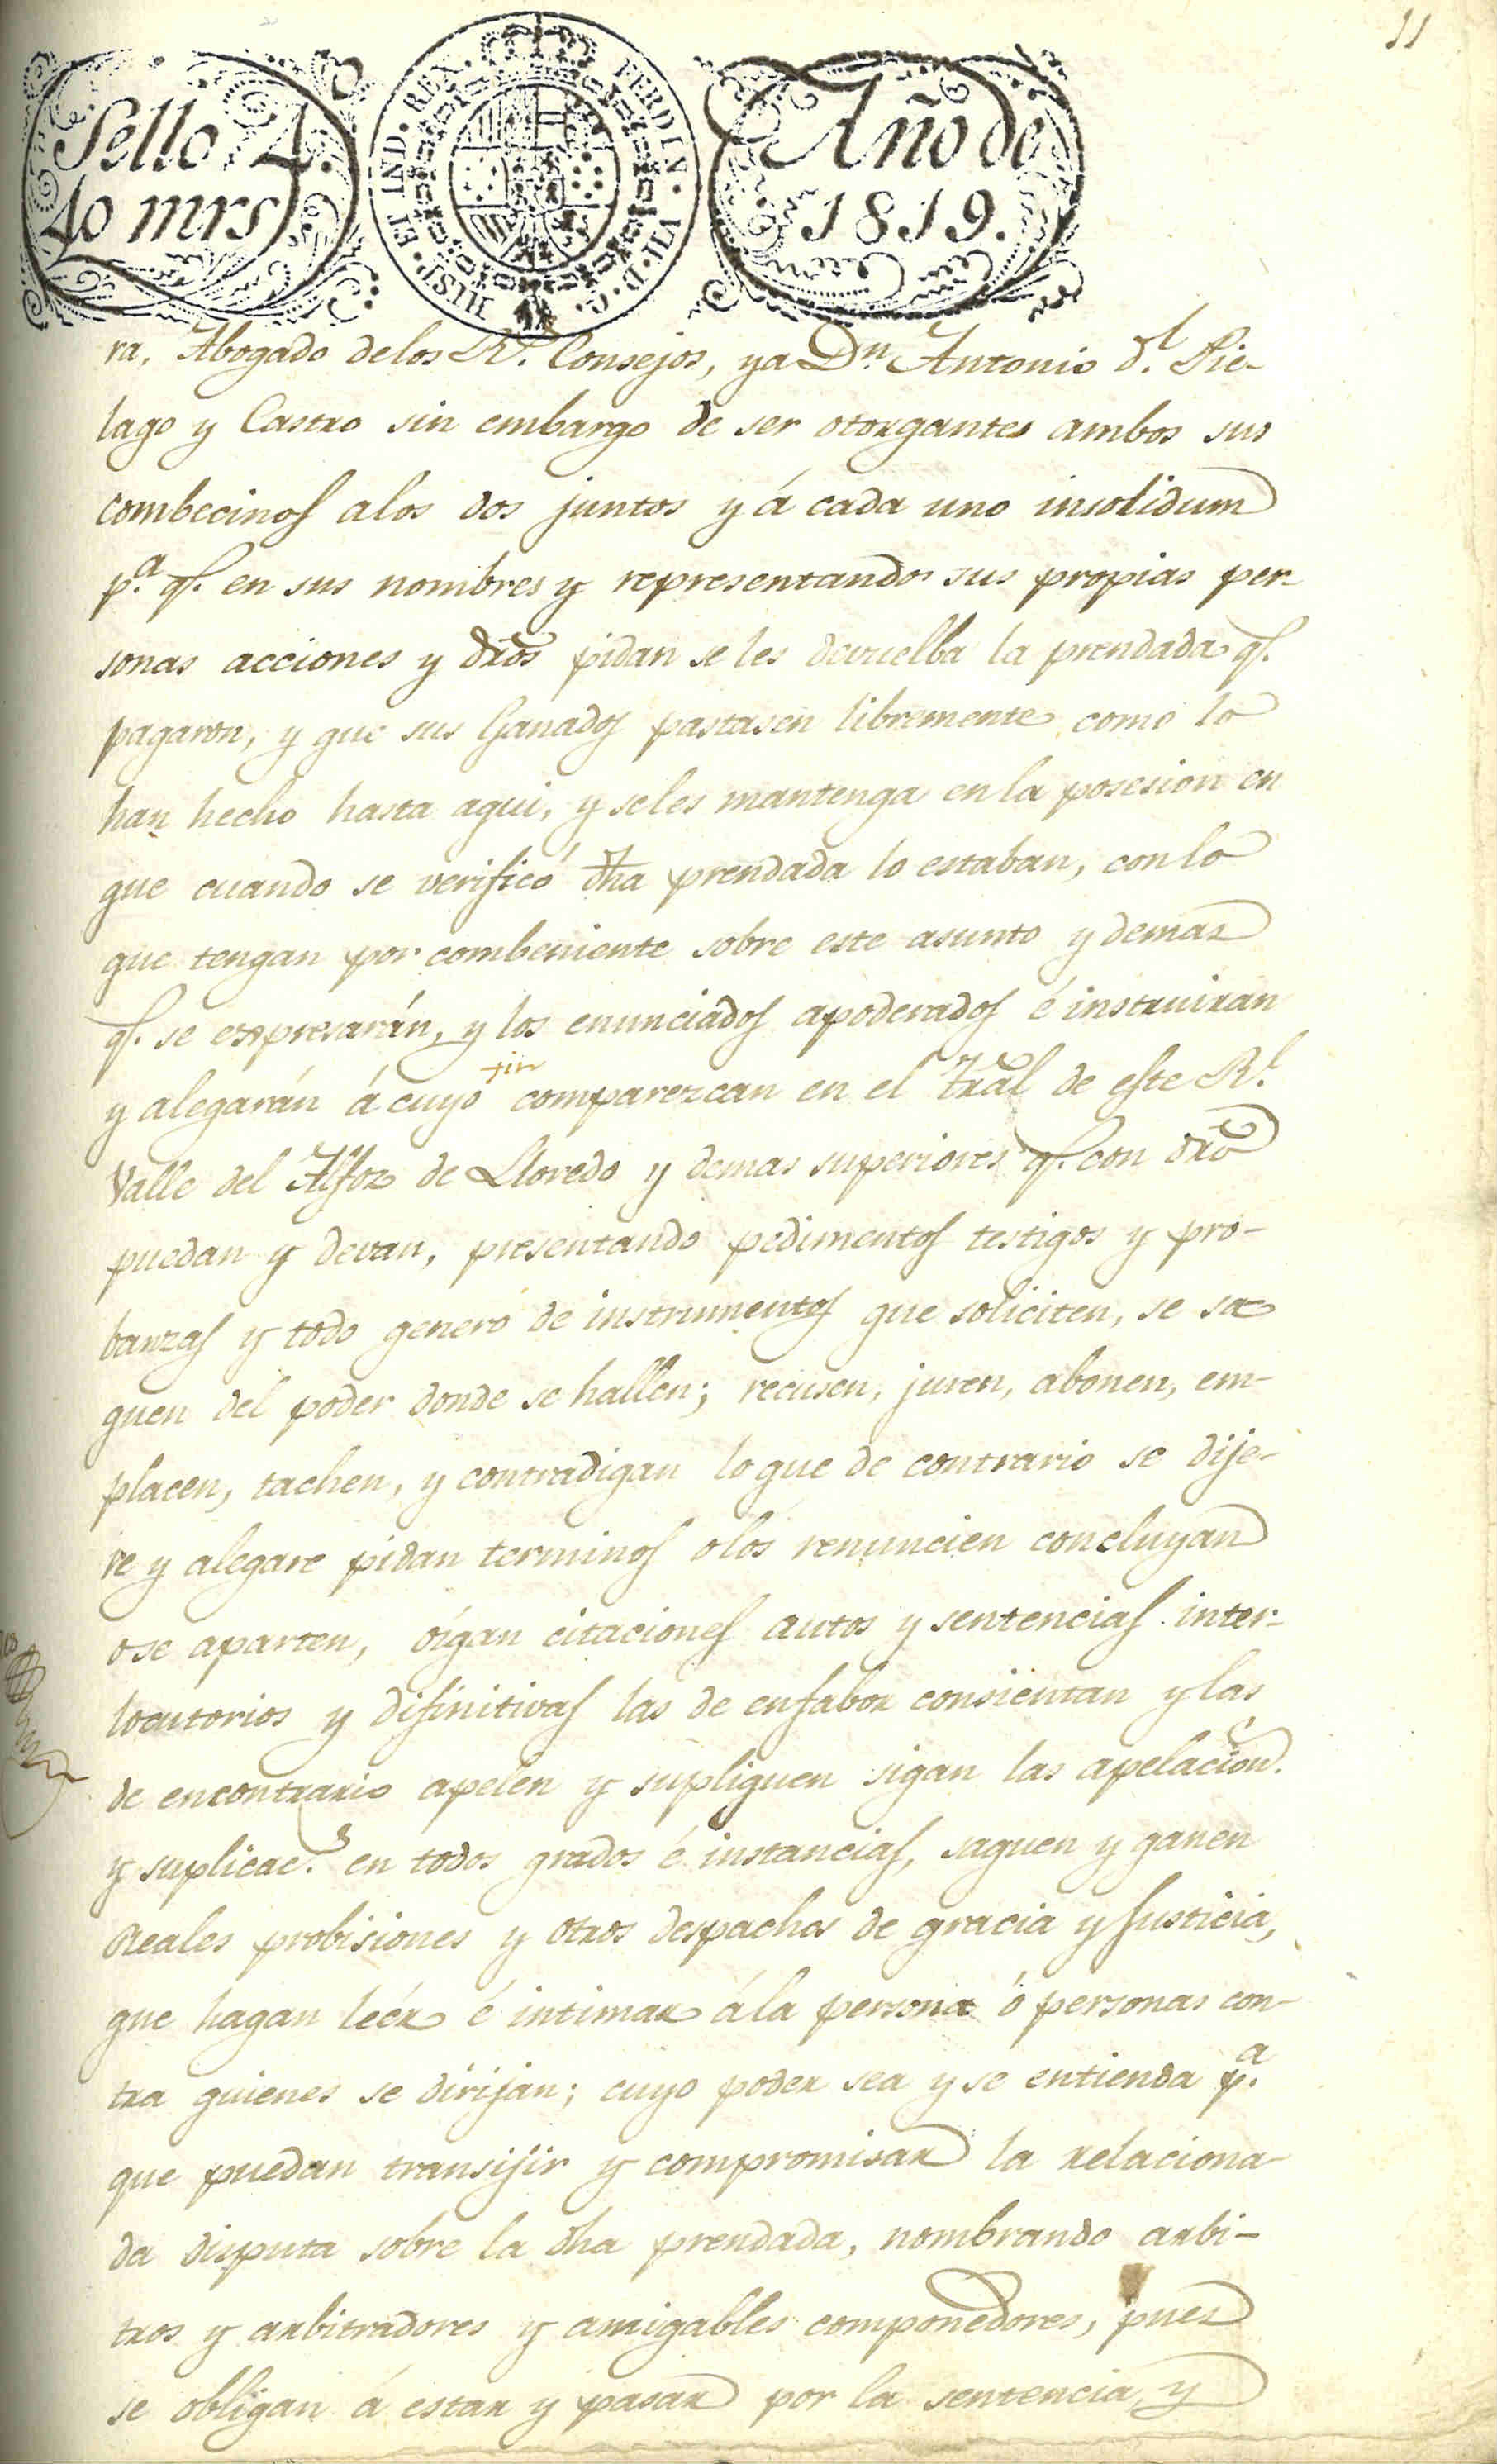 11
Sello 4.
40 mrs
HISP. ET IND. REX. FERDIN. VII. D. G.
Año de
1819.
ra, Abogado delos R.s Consejos, ya Dn. Antonio d.l Pie-
lago y Castro sin embargo de ser otorgantes ambos sus
combecinos alos dos juntos y á cada uno insolidum
p.a q.e en sus nombres y representando sus propias per-
sonas acciones y dros pidan se les devuelba la prendada q.e
pagaron, y que sus Ganados pastasen libremente como lo
han hecho hasta aqui, y seles mantenga en la posesion en
que cuando se verificó dha prendada lo estaban, con lo
que tengan por combeniente sobre este asunto y demas
q.e se expresarán, y los enunciados apoderados é instruiran
y alegarán á cuyo fin comparezcan en el tral de este R.l
Valle del Alfoz de Lloredo y demas superiores q.e con dro
puedan y devan, presentando pedimentos testigos y pro-
banzas y todo genero de instrumentos que soliciten, se sa-
quen del poder donde se hallen; recusen, juren, abonen, em-
placen, tachen, y contradigan lo que de contrario se dije-
re y alegare pidan terminos olos renuncien concluyan
ose aparten, oigan citaciones autos y sentencias inter-
locutorios y difinitivas las de enfabor consientan y las
de encontrario apelen y supliquen sigan las apelacion.s
y suplicac.s en todos grados é instancias, saquen y ganen
Reales probisiones y otros despachos de gracia y Justicia,
que hagan leér é intimar ála persona ó personas con-
tra quienes se dirijan; cuyo poder sea y se entienda p.a
que puedan transijir y compromisar la relaciona-
da disputa sobre la dha prendada, nombrando arbi-
tros y arbitradores y amigables componedores, pues
se obligan á estar y pasar por la sentencia y